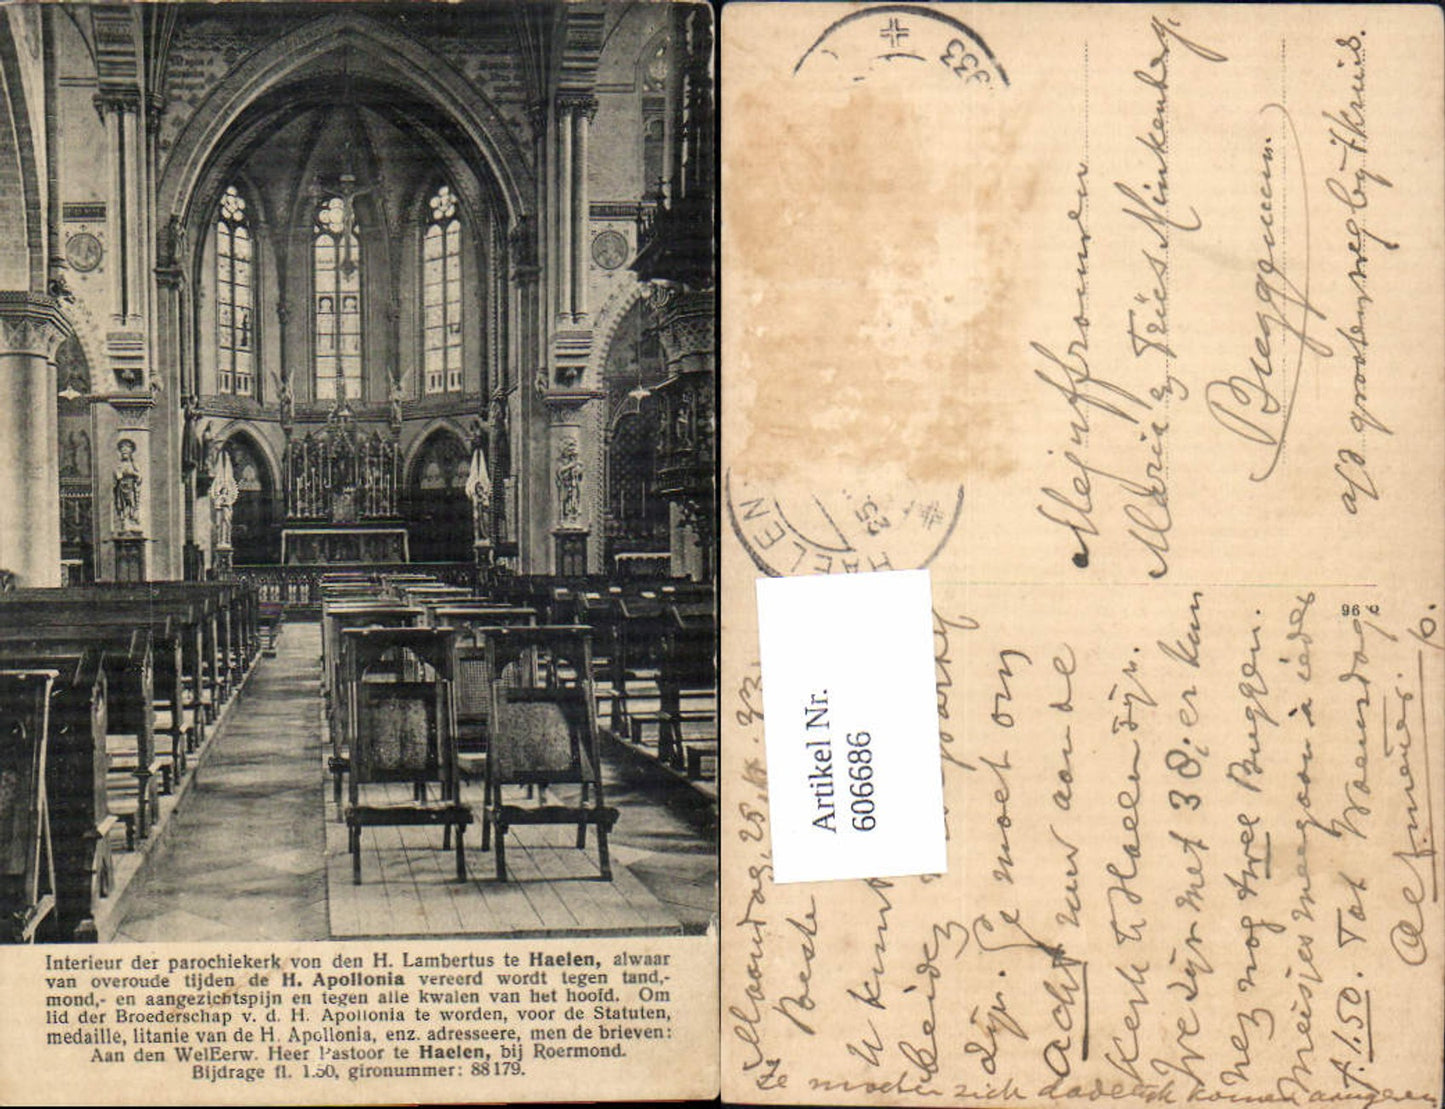 Interieur der parochiekerk von den H. Lambertus te Haelen, alwaar
van overoude tijden de H. Apollonia vereerd wordt tegen tand,-
mond,- en aangezichtspijn en tegen alle kwalen van het hoofd. Om
lid der Broederschap v. d. H. Apollonia te worden, voor de Statuten,
medaille, litanie van de H. Apollonia, enz. adresseere, men de brieven:
Aan den WelEerw. Heer Pastoor te Haelen, bij Roermond.
Bijdrage fl. 1.50, gironummer: 88179.
933
25
Mejuffrouwen
Marie & Triës Minkenberg,
Buggenum.
a/d grootenweg by 't kruis.
96
Artikel Nr.
606686
Maandag, 25
Beste
U kunt
beide
zijn. Je moet om
acht uur aan de
Kerk te Haelen zijn.
We zijn met 38; er kan
nog twee Buggen.
meisjes meegaan à ieder
f. 1.50. Tot Woensdag.
Ze moeten zich dadelijk komen aangeven